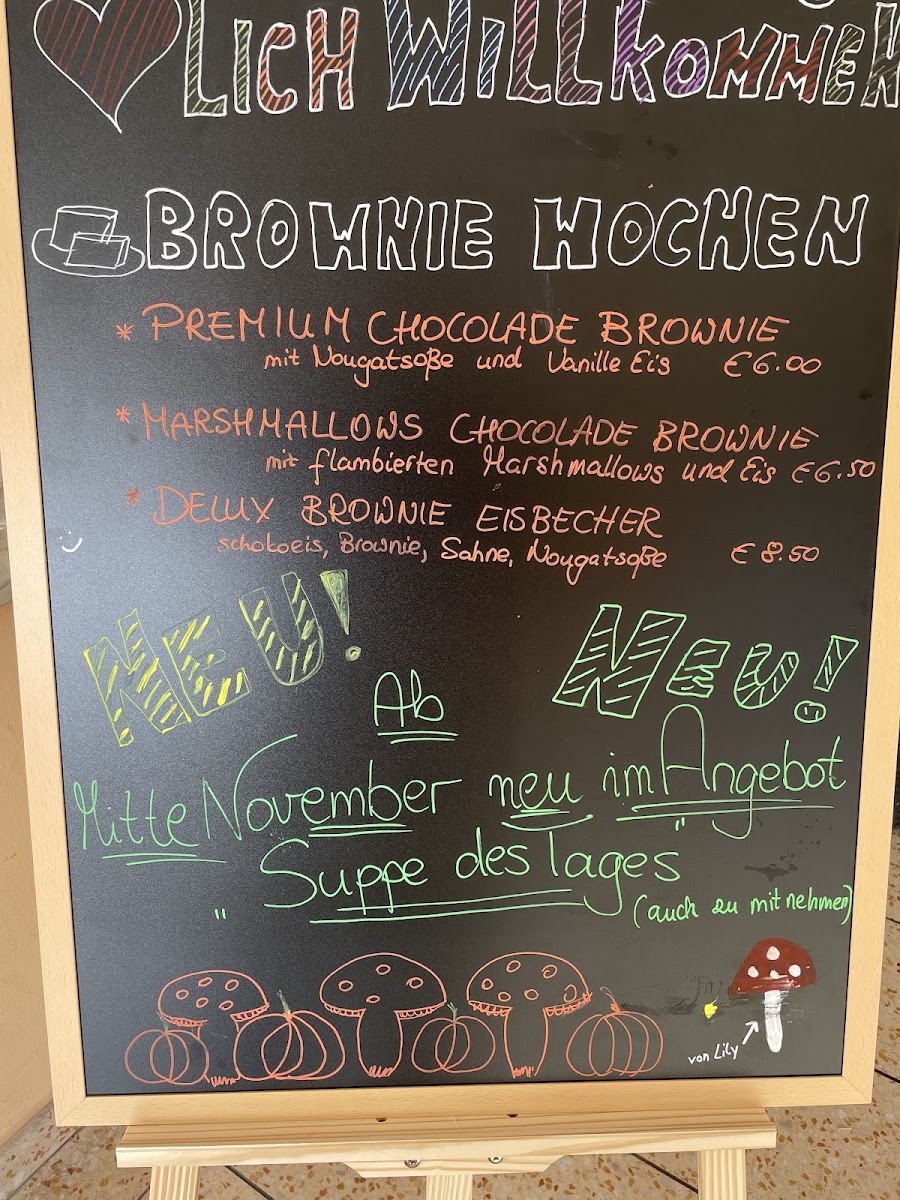 LICH WILLKOMMEN
BROWNIE WOCHEN
* PREMIUM CHOCOLADE BROWNIE
mit Nougatsoße und Vanille Eis € 6.00
* MARSHMALLOWS CHOCOLADE BROWNIE
mit flambierten Marshmallows und Eis € 6.50
* DELUX BROWNIE EISBECHER
schokoeis, Brownie, Sahne, Nougatsoße € 8.50
NEU! NEU!
Ab
Mitte November neu im Angebot
"Suppe des Tages"
(auch zu mitnehmen)
von Lily